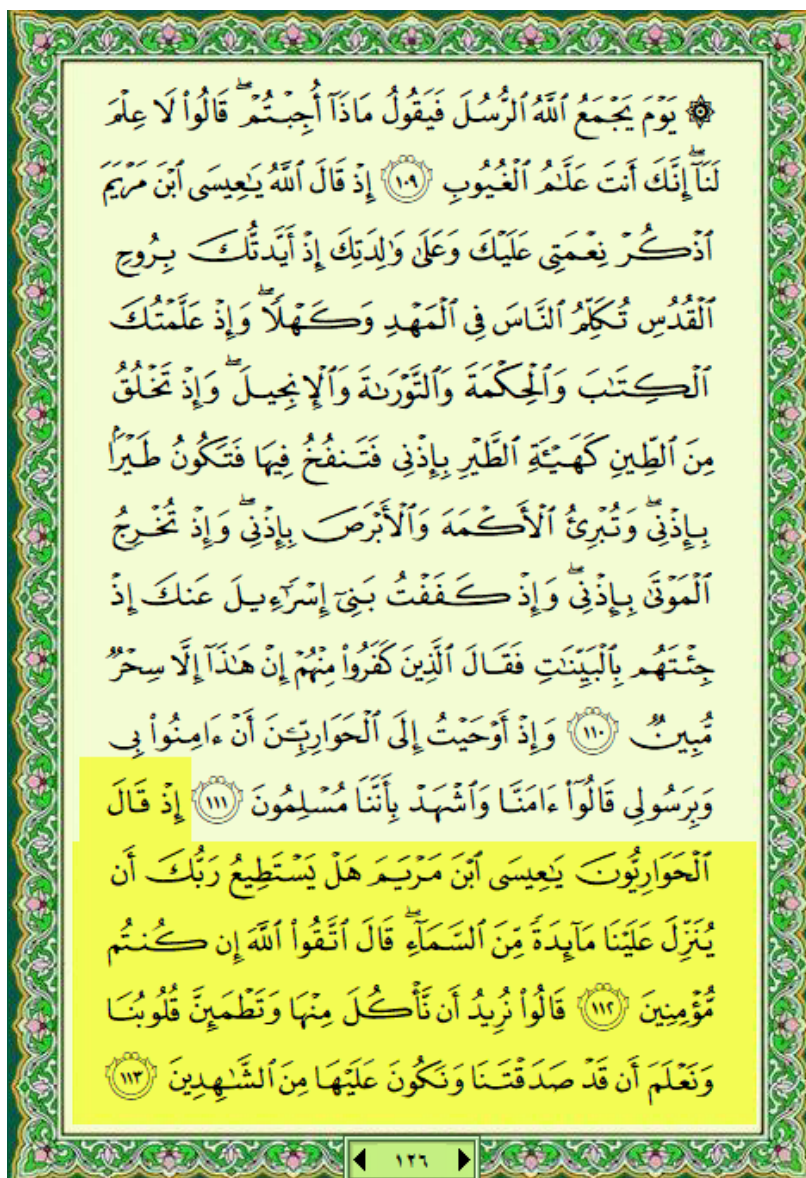 ۞ يَوْمَ يَجْمَعُ ٱللَّهُ ٱلرُّسُلَ فَيَقُولُ مَاذَآ أُجِبْتُمْۖ قَالُوا۟ لَا عِلْمَ
لَنَآۖ إِنَّكَ أَنتَ عَلَّـٰمُ ٱلْغُيُوبِ ١٠٩ إِذْ قَالَ ٱللَّهُ يَـٰعِيسَى ٱبْنَ مَرْيَمَ
ٱذْكُرْ نِعْمَتِى عَلَيْكَ وَعَلَىٰ وَٰلِدَتِكَ إِذْ أَيَّدتُّكَ بِرُوحِ
ٱلْقُدُسِ تُكَلِّمُ ٱلنَّاسَ فِى ٱلْمَهْدِ وَكَهْلًاۖ وَإِذْ عَلَّمْتُكَ
ٱلْكِتَـٰبَ وَٱلْحِكْمَةَ وَٱلتَّوْرَىٰةَ وَٱلْإِنجِيلَۖ وَإِذْ تَخْلُقُ
مِنَ ٱلطِّينِ كَهَيْـَٔةِ ٱلطَّيْرِ بِإِذْنِى فَتَنفُخُ فِيهَا فَتَكُونُ طَيْرًۢا
بِإِذْنِىۖ وَتُبْرِئُ ٱلْأَكْمَهَ وَٱلْأَبْرَصَ بِإِذْنِىۖ وَإِذْ تُخْرِجُ
ٱلْمَوْتَىٰ بِإِذْنِىۖ وَإِذْ كَفَفْتُ بَنِىٓ إِسْرَٰٓءِيلَ عَنكَ إِذْ
جِئْتَهُم بِٱلْبَيِّنَـٰتِ فَقَالَ ٱلَّذِينَ كَفَرُوا۟ مِنْهُمْ إِنْ هَـٰذَآ إِلَّا سِحْرٌ
مُّبِينٌ ١١٠ وَإِذْ أَوْحَيْتُ إِلَى ٱلْحَوَارِيِّـۧنَ أَنْ ءَامِنُوا۟ بِى
وَبِرَسُولِى قَالُوٓا۟ ءَامَنَّا وَٱشْهَدْ بِأَنَّنَا مُسْلِمُونَ ١١١ إِذْ قَالَ
ٱلْحَوَارِيُّونَ يَـٰعِيسَى ٱبْنَ مَرْيَمَ هَلْ يَسْتَطِيعُ رَبُّكَ أَن
يُنَزِّلَ عَلَيْنَا مَآئِدَةً مِّنَ ٱلسَّمَآءِۖ قَالَ ٱتَّقُوا۟ ٱللَّهَ إِن كُنتُم
مُّؤْمِنِينَ ١١٢ قَالُوا۟ نُرِيدُ أَن نَّأْكُلَ مِنْهَا وَتَطْمَئِنَّ قُلُوبُنَا
وَنَعْلَمَ أَن قَدْ صَدَقْتَنَا وَنَكُونَ عَلَيْهَا مِنَ ٱلشَّـٰهِدِينَ ١١٣
١٢٦